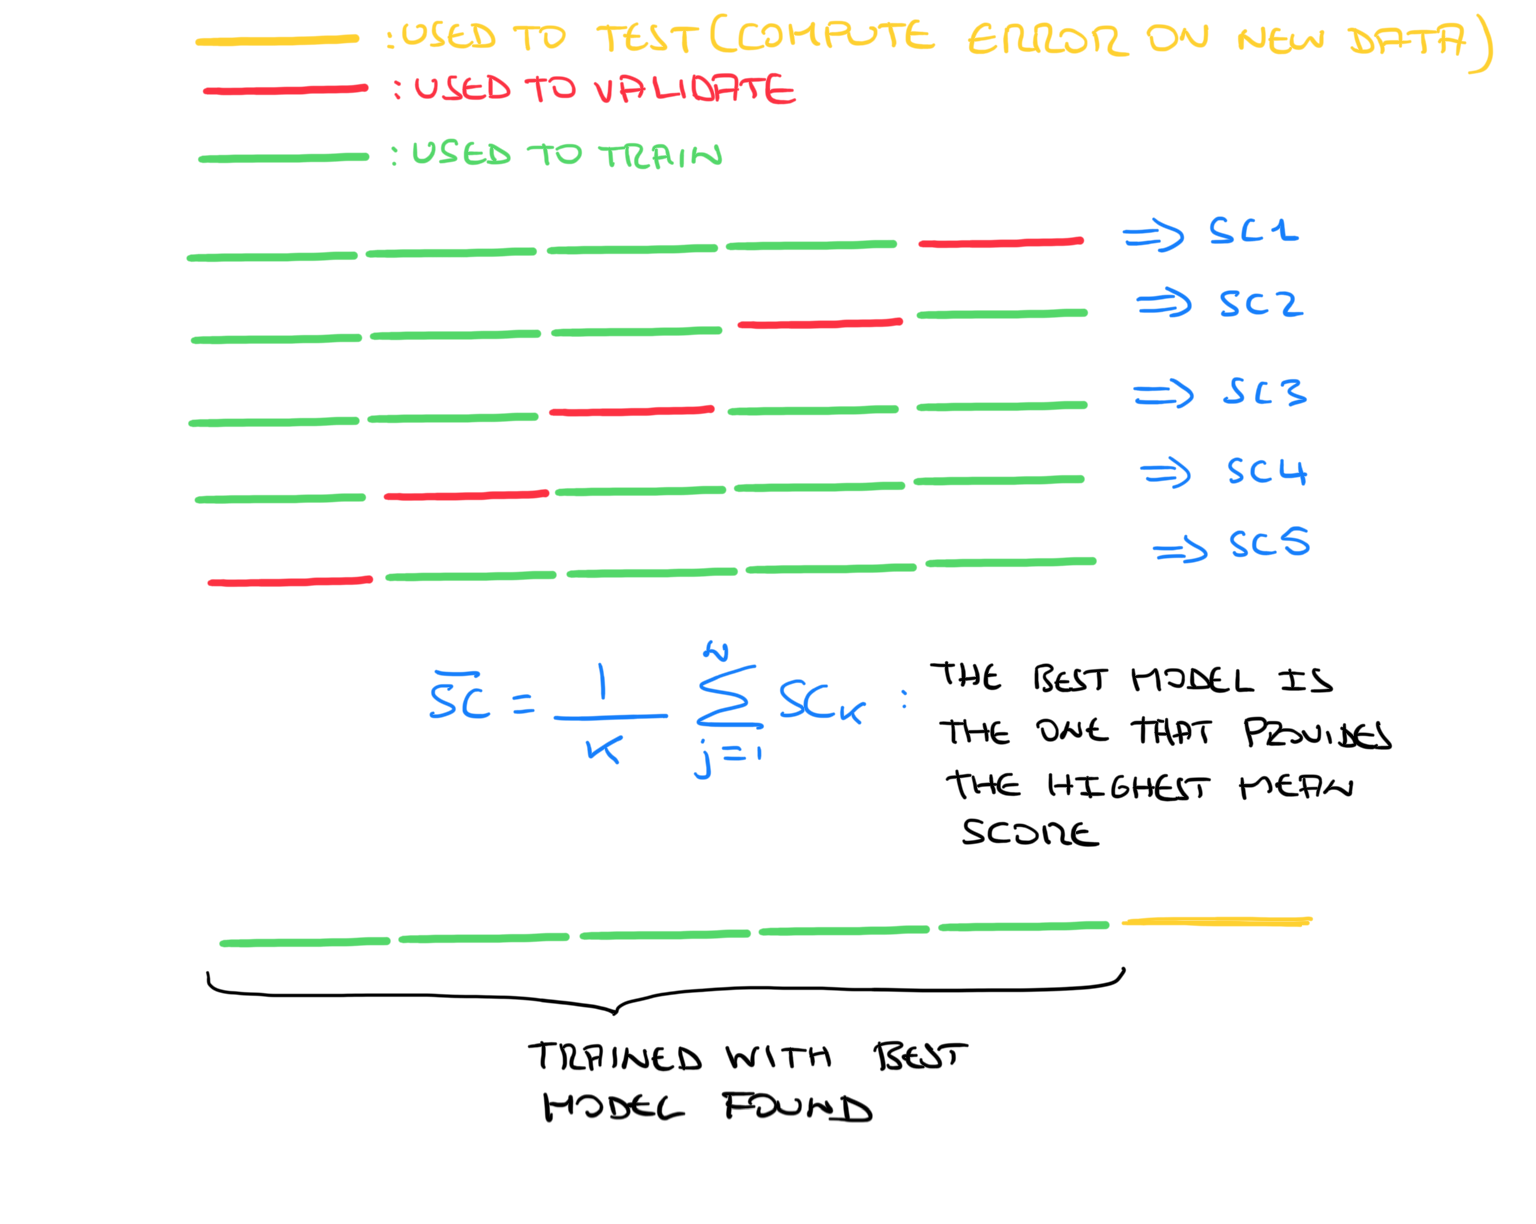 : USED TO TEST (COMPUTE ERROR ON NEW DATA)
: USED TO VALIDATE
: USED TO TRAIN
⇒ SC1
⇒ SC2
⇒ SC3
⇒ SC4
⇒ SC5
S̅C̅ = 1/K N∑j=1 SCK : THE BEST MODEL IS
THE ONE THAT PROVIDES
THE HIGHEST MEAN
SCORE
TRAINED WITH BEST
MODEL FOUND